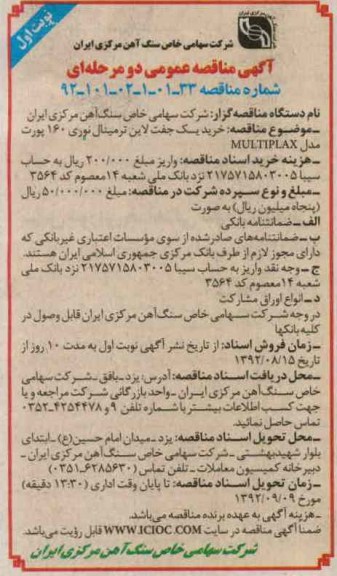 نوبت اول
شرکت سهامی خاص سنگ آهن مرکزی ایران
آگهی مناقصه عمومی دو مرحله‌ای
شماره مناقصه ۳۳-۰۱-۱-۰۲-۱۰۱-۹۲
نام دستگاه مناقصه‌گزار: شرکت سهامی خاص سنگ‌آهن مرکزی ایران
ـ موضوع مناقصه: خرید یک جفت لاین ترمینال نوری ۱۶۰ پورت
مدل MULTIPLAX
ـ هزینه خرید اسناد مناقصه: واریز مبلغ ۲۰۰/۰۰۰ ریال به حساب
سیبا ۲۱۷۵۷۱۵۸۰۳۰۰۵ نزد بانک ملی شعبه ۱۴معصوم کد ۳۵۶۴
ـ مبلغ و نوع سپرده شرکت در مناقصه: مبلغ ۵۰/۰۰۰/۰۰۰ ریال
(پنجاه میلیون ریال) به صورت
الف ـ ضمانتنامه بانکی
ب ـ ضمانتنامه‌های صادرشده از سوی مؤسسات اعتباری غیربانکی که
دارای مجوز لازم از طرف بانک مرکزی جمهوری اسلامی ایران هستند.
ج ـ وجه نقد واریز به حساب سیبا ۲۱۷۵۷۱۵۸۰۳۰۰۵ نزد بانک ملی
شعبه ۱۴معصوم کد ۳۵۶۴
د ـ انواع اوراق مشارکت
در وجه شرکت سهامی خاص سنگ‌آهن مرکزی ایران قابل وصول در
کلیه بانکها
ـ زمان فروش اسناد: از تاریخ نشر آگهی نوبت اول به مدت ۱۰ روز از
تاریخ ۱۳۹۲/۰۸/۱۵
ـ محل دریافت اسناد مناقصه: آدرس: یزد ـ بافق ـ شرکت سهامی
خاص سنگ‌آهن مرکزی ایران ـ واحد بازرگانی شرکت مراجعه و یا
جهت کسب اطلاعات بیشتر با شماره تلفن ۹ و ۴۲۵۴۴۷۸-۰۳۵۲
تماس حاصل نمائید.
ـ محل تحویل اسناد مناقصه: یزد ـ میدان امام حسین(ع) ـ ابتدای
بلوار شهیدبهشتی ـ شرکت سهامی خاص سنگ‌آهن مرکزی ایران ـ
دبیرخانه کمیسیون معاملات ـ تلفن تماس (۶۲۸۵۶۳۰-۰۳۵۱)
ـ زمان تحویل اسناد مناقصه: تا پایان وقت اداری (۱۳:۳۰ دقیقه)
مورخ ۱۳۹۲/۰۹/۰۹
ـ هزینه آگهی به عهده برنده مناقصه می‌باشد.
ضمناً آگهی مناقصه در سایت WWW.ICIOC.COM قابل رؤیت می‌باشد.
شرکت سهامی خاص سنگ آهن مرکزی ایران